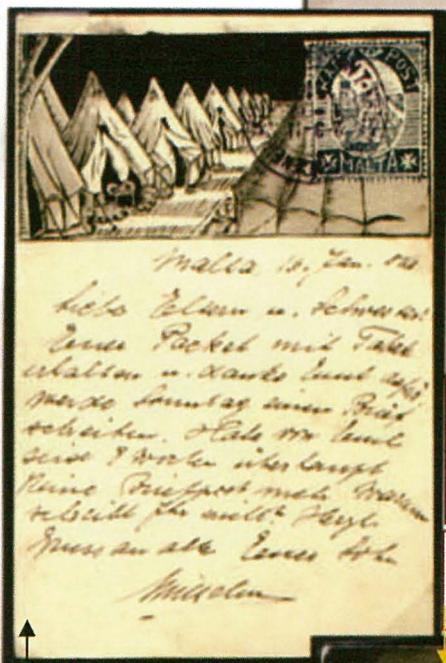 POST
MALTA
Malta 10. Jan.
Liebe Eltern u. Schwester!
Euer Packet mit Tabak
erhalten u. danke Euch dafür
werde Sonntag einen Brief
schreiben. Habe von Euch
seit 8 Wochen überhaupt
keine Briefpost mehr. Warum
schreibt Ihr nicht? Herzl.
Gruss an alle Euer Sohn
Wilhelm